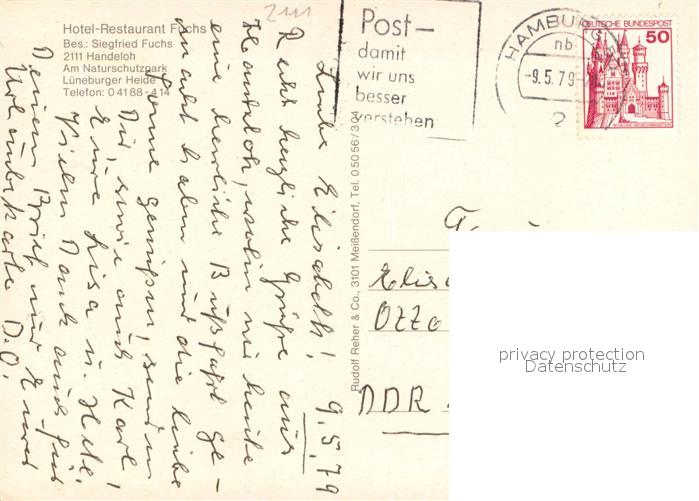 Hotel-Restaurant Fuchs
Bes.: Siegfried Fuchs
2111 Handeloh
Am Naturschutzpark
Lüneburger Heide
Telefon: 0 41 88 - 414
2111
Post-
damit
wir uns
besser
verstehen
HAMBURG
nb
-9.5.79-
2
DEUTSCHE BUNDESPOST
50
9.5.79
Liebe Elisabeth!
Recht herzliche Grüße aus
Handeloh, wohin wir heute
eine herrliche Busfahrt ge-
macht haben und die liebe
Sonne genießen, senden
Dir, sowie auch Karl,
Eure Lisa u. Hele
Vielen Dank auch für
Deinen Brief und Eure
Urlaubskarte D.O.
Rudolf Reher & Co., 3101 Meißendorf, Tel. 0 50 56 / 3
Otto
DDR
privacy protection
Datenschutz